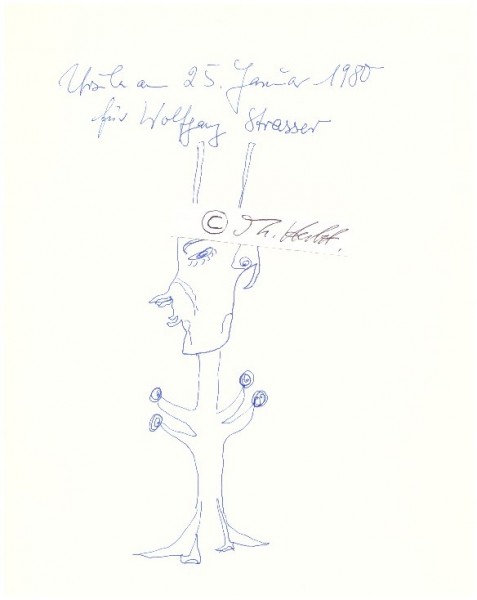 Ursula am 25. Januar 1980
für Wolfgang Strasser
© Th. Herbst.